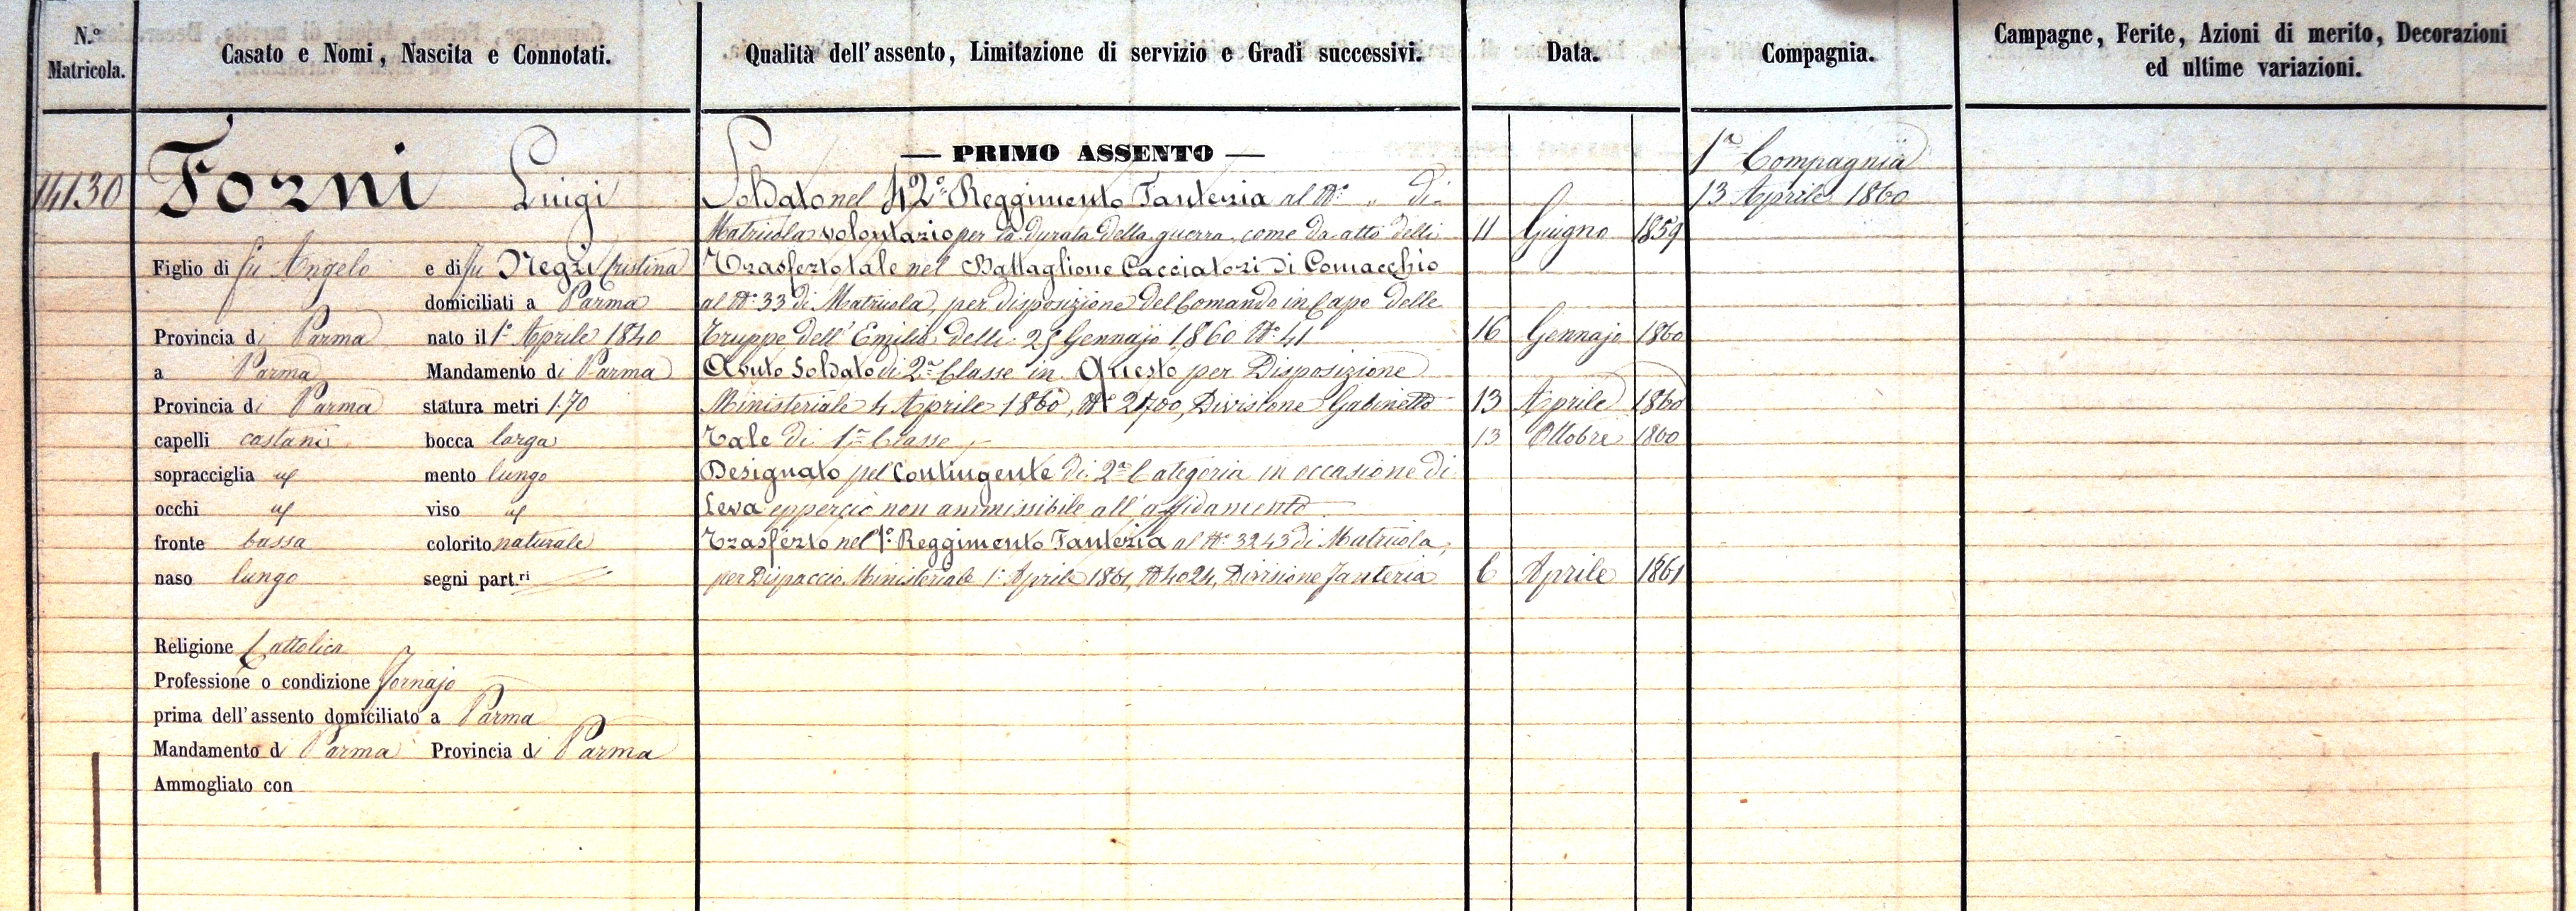 N.º Matricola.
Casato e Nomi, Nascita e Connotati.
Qualità dell'assento, Limitazione di servizio e Gradi successivi.
Data.
Compagnia.
Campagne, Ferite, Azioni di merito, Decorazioni
ed ultime variazioni.
14130
Forni Luigi
Figlio di fu Angelo e di fu Negri Cristina
domiciliati a Parma
Provincia di Parma nato il 1º Aprile 1840
a Parma Mandamento di Parma
Provincia di Parma statura metri 1.70
capelli castani bocca larga
sopracciglia mento lungo
occhi viso
fronte bassa colorito naturale
naso lungo segni part.ri
Religione Cattolica
Professione o condizione Fornajo
prima dell'assento domiciliato a Parma
Mandamento di Parma Provincia di Parma
Ammogliato con
— PRIMO ASSENTO —
Soldato nel 42º Reggimento Fanteria al Nº " di
Matricola volontario per la durata della guerra, come da atto delli 11 Giugno 1859
Trasferto tale nel Battaglione Cacciatori di Comacchio
al Nº 33 di Matricola, per disposizione del Comando in Capo delle
Truppe dell'Emilia delli 25 Gennajo 1860 Nº 41 16 Gennajo 1860
Avuto Soldato di 2ª Classe in Questo per Disposizione
Ministeriale 4 Aprile 1860, Nº 2700, Divisione Gabinetto 13 Aprile 1860
Tale di 1ª Classe 13 Ottobre 1860
Designato pel Contingente di 2ª Categoria in occasione di
Leva epperciò non ammissibile all'affidamento
Trasferto nel 1º Reggimento Fanteria al Nº 3243 di Matricola,
per Dispaccio Ministeriale 1º Aprile 1861, Nº 4024, Divisione Fanteria 6 Aprile 1861
1ª Compagnia
13 Aprile 1860